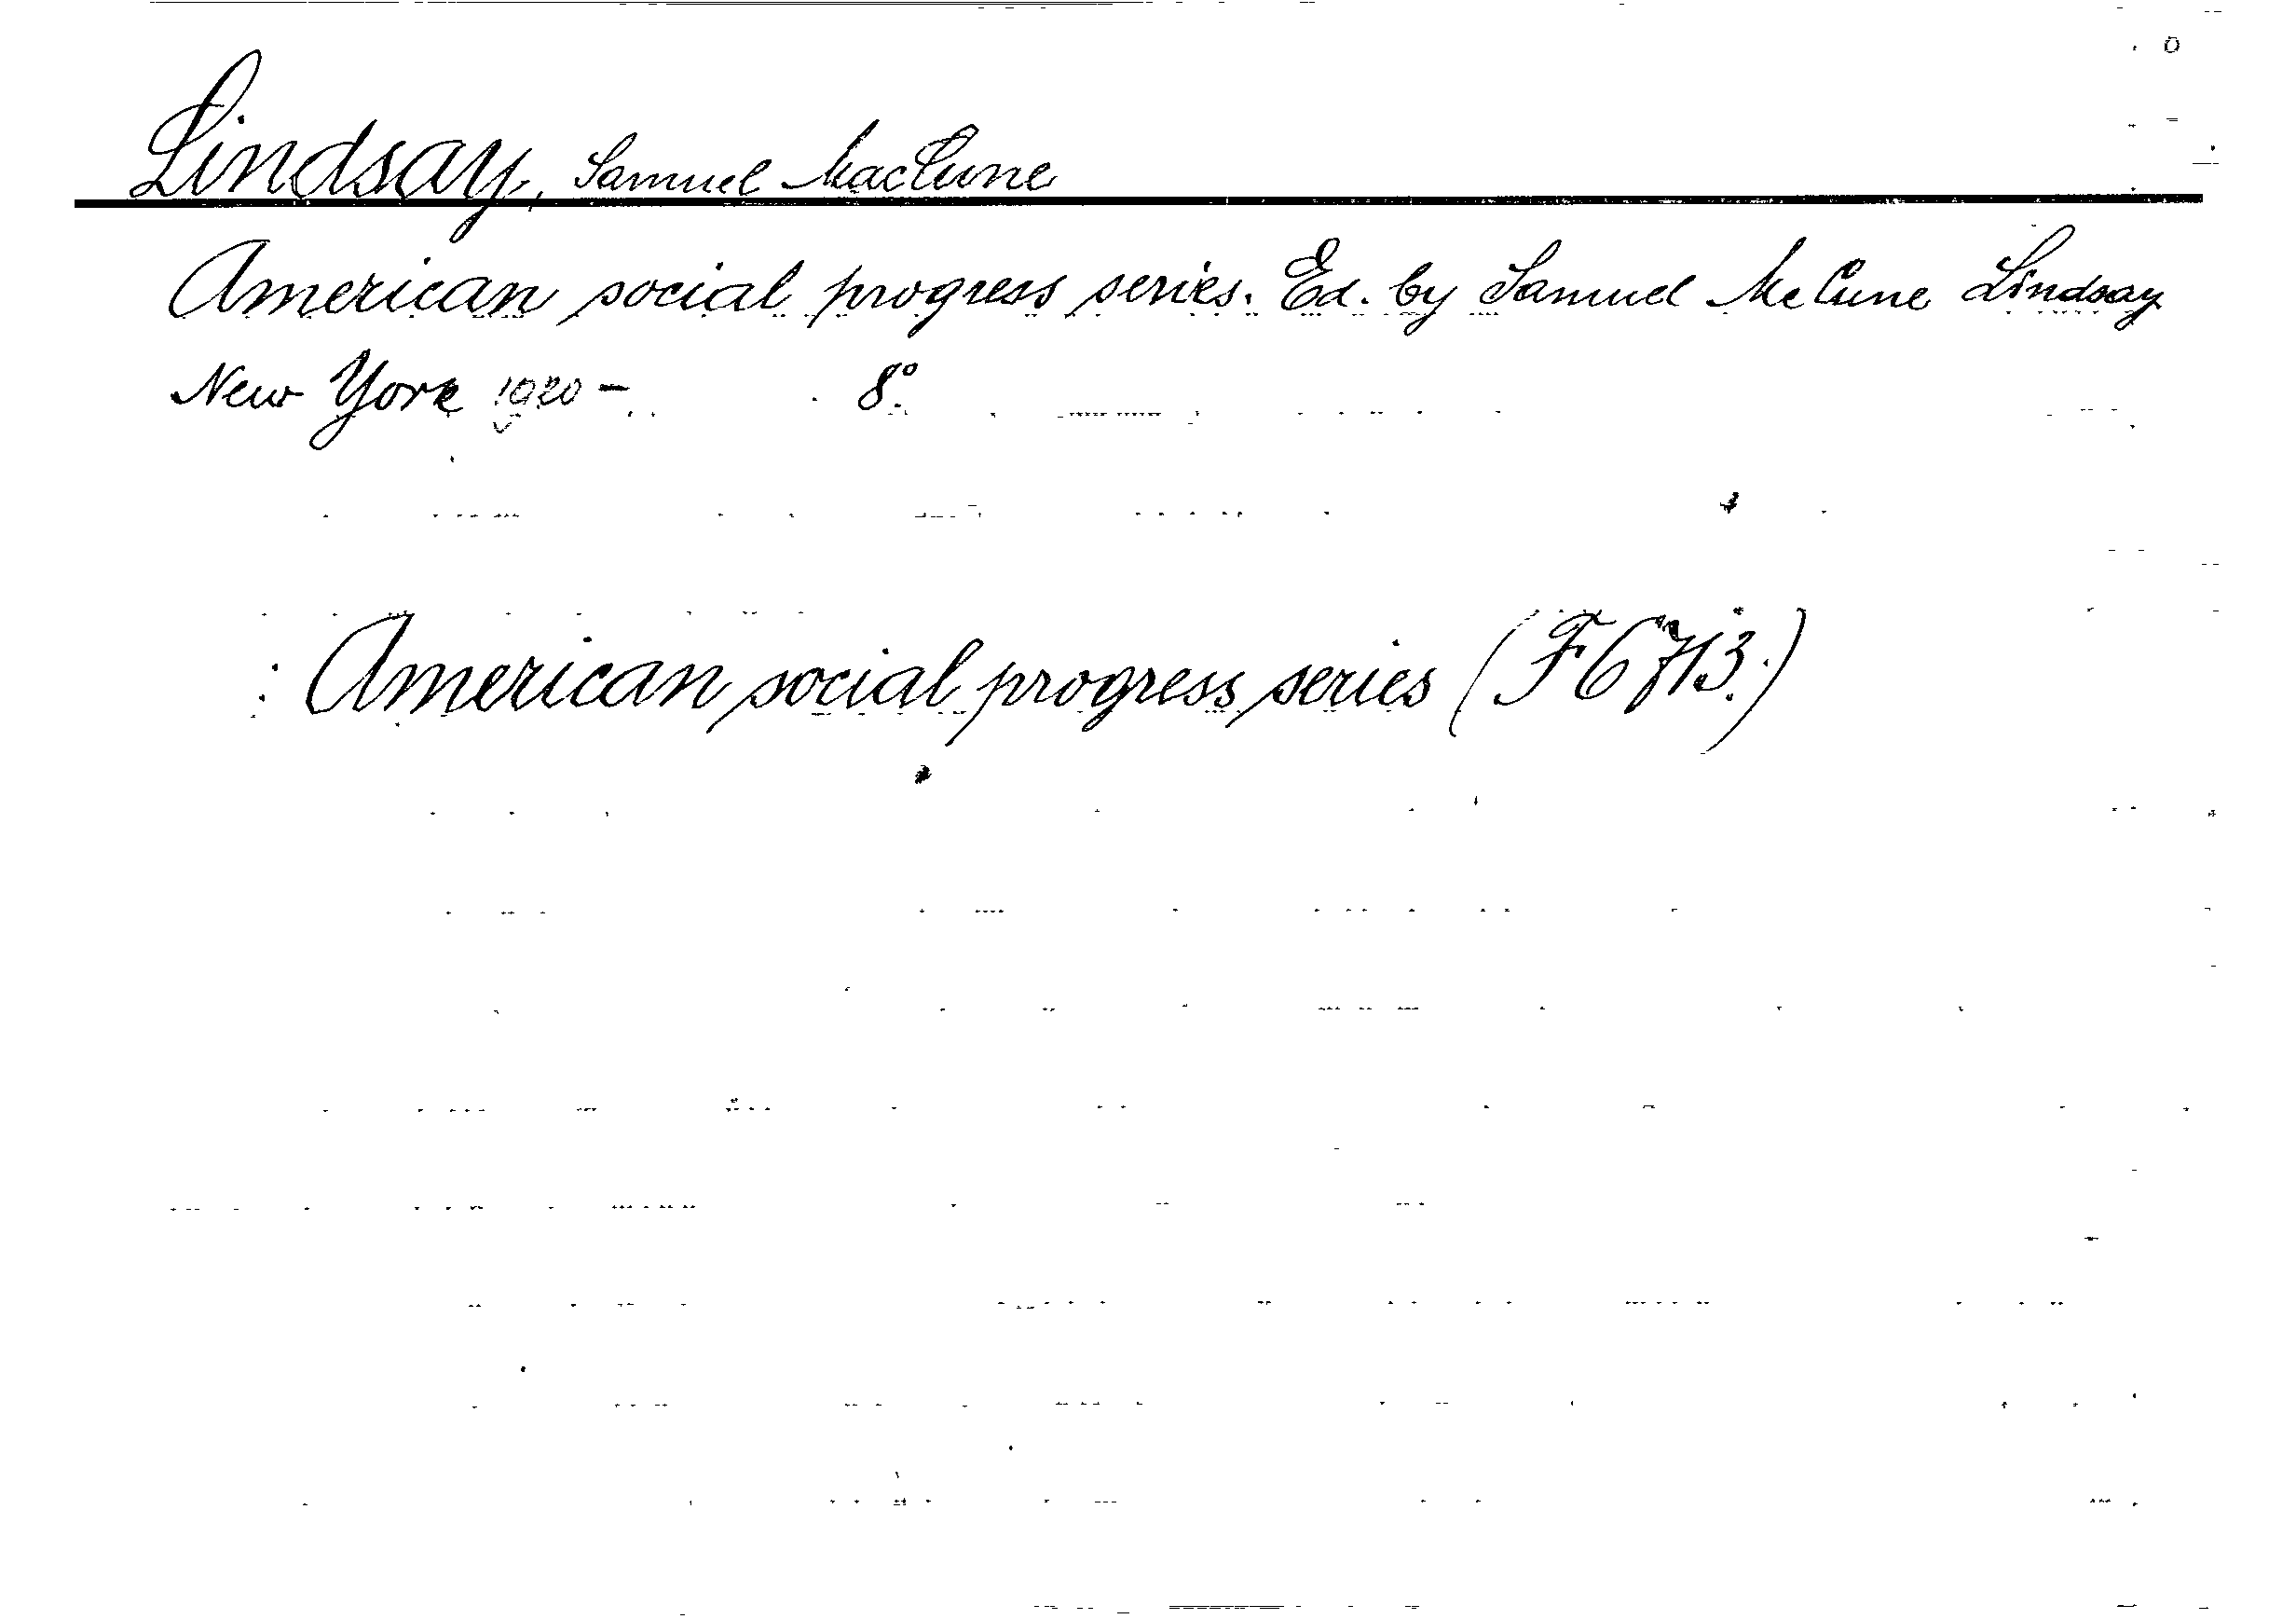 Lindsay, Samuel MacCune
American social progress series. Ed. by Samuel McCune Lindsay
New York 1920- 8°.
: American social progress series (F6713.)